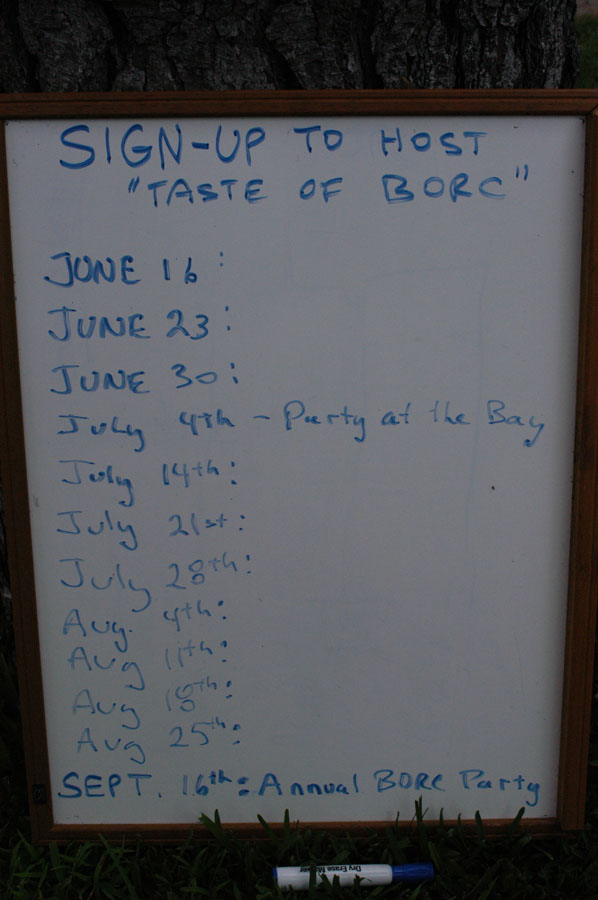 SIGN-UP TO HOST
"TASTE OF BORC"
JUNE 16:
JUNE 23:
JUNE 30:
July 4th - Party at the Bay
July 14th:
July 21st:
July 28th:
Aug. 4th:
Aug 11th:
Aug 18th:
Aug 25th:
SEPT. 16th: Annual BORC Party
Dry Erase Marker